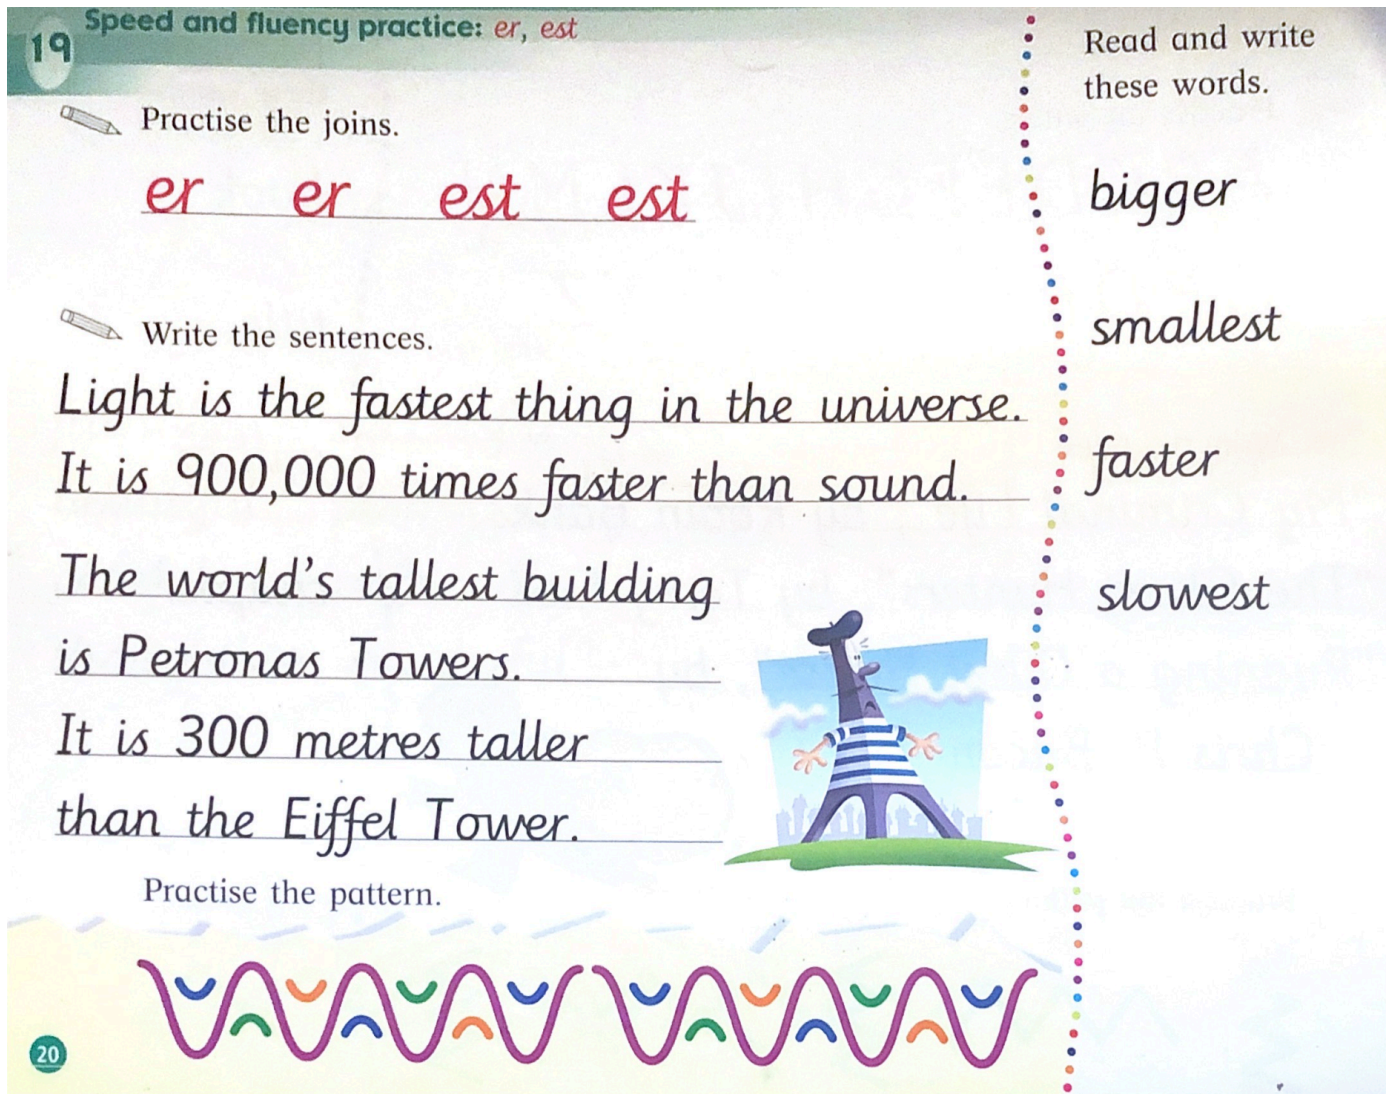 19
Speed and fluency practice: er, est
Practise the joins.
er er est est
Write the sentences.
Light is the fastest thing in the universe.
It is 900,000 times faster than sound.
The world's tallest building
is Petronas Towers.
It is 300 metres taller
than the Eiffel Tower.
Practise the pattern.
20
Read and write
these words.
bigger
smallest
faster
slowest